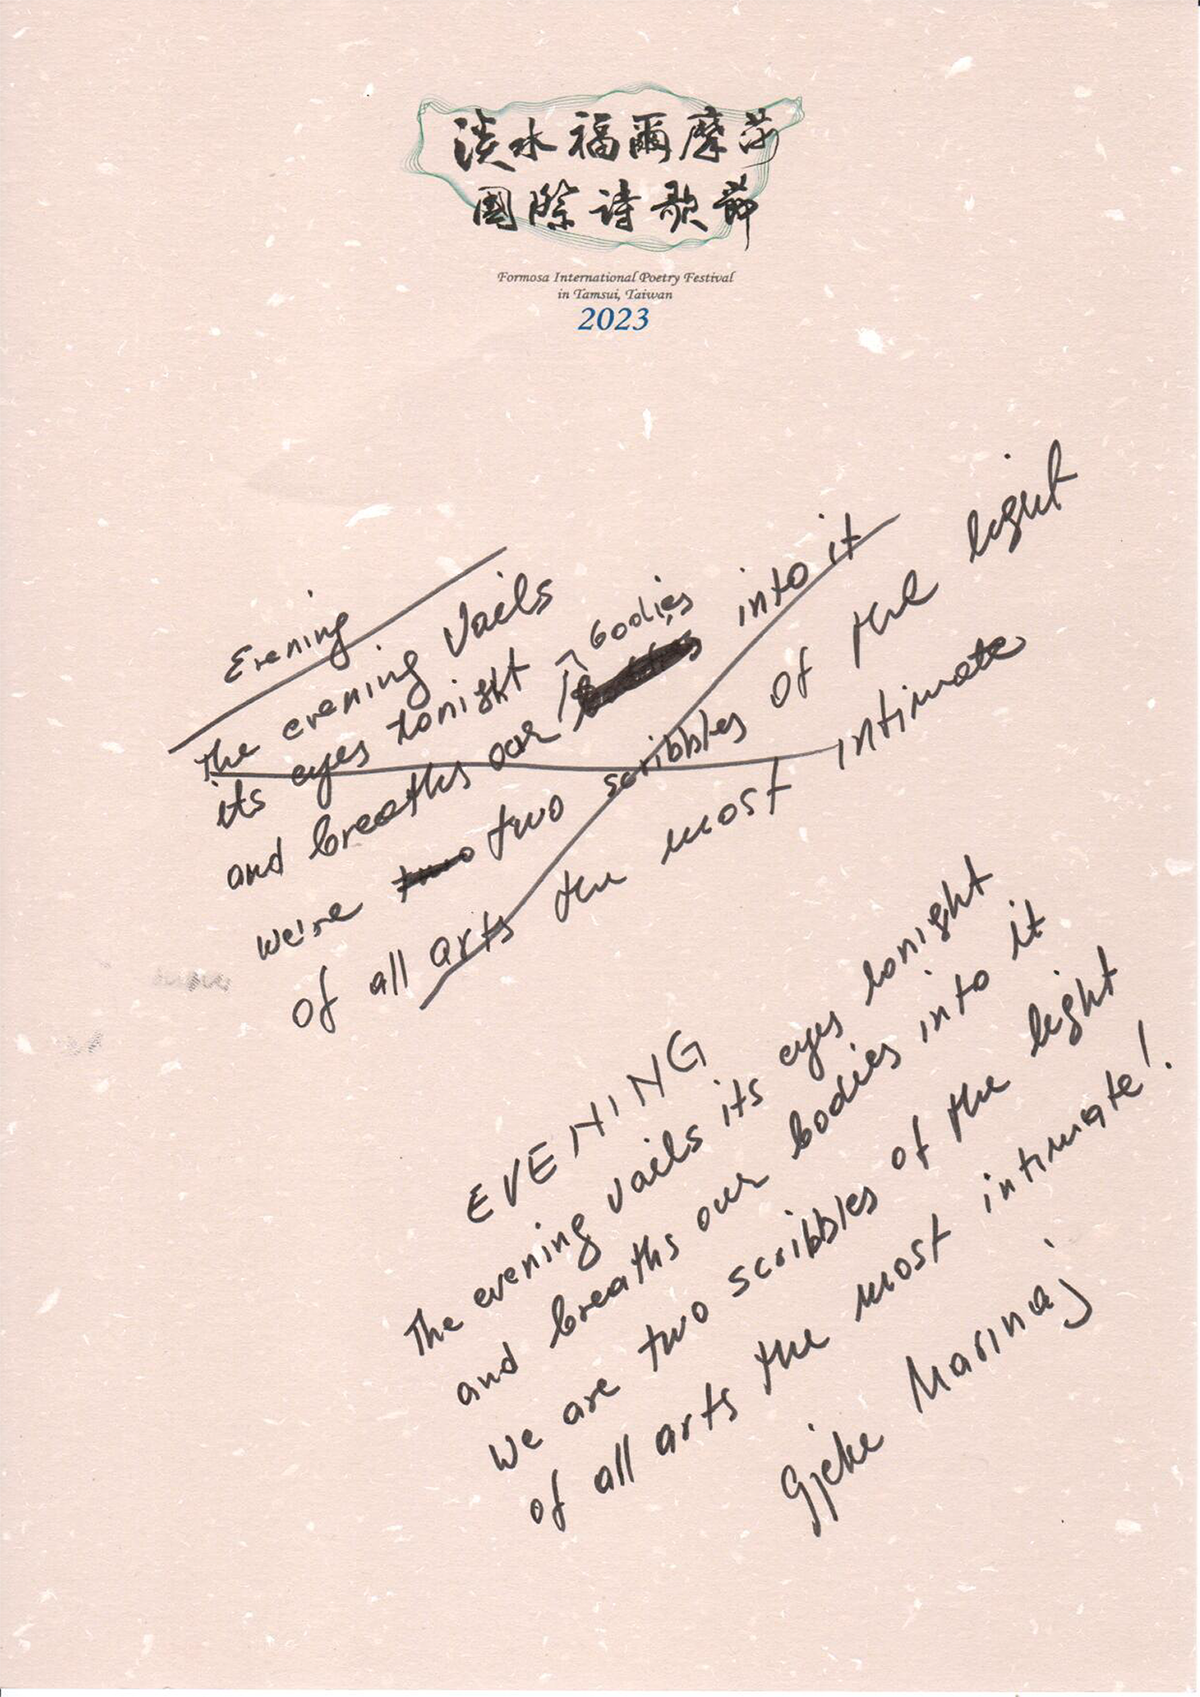 淡水福爾摩莎
國際詩歌節
Formosa International Poetry Festival
in Tamsui, Taiwan
2023
Evening
The evening vails
its eyes tonight
and breaths our bodies into it
we're two two scribbles of the light
of all arts the most intimate
EVENING
The evening vails its eyes tonight
and breaths our bodies into it
We are two scribbles of the light
of all arts the most intimate!.
Gjeke Marinaj